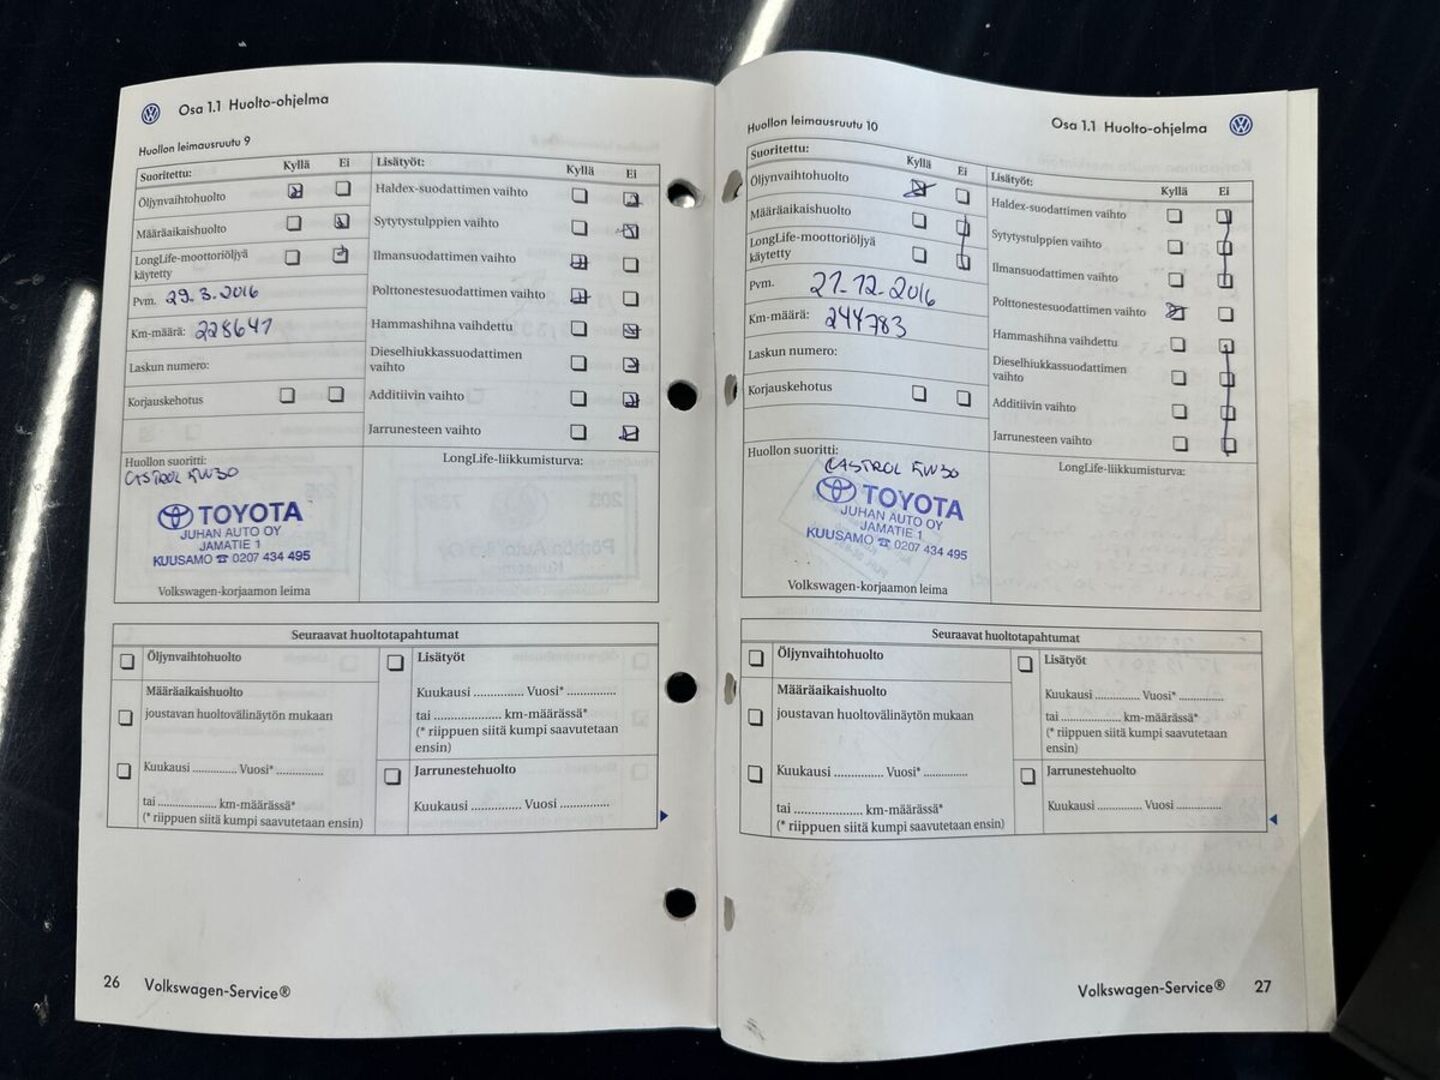 Osa 1.1 Huolto-ohjelma
Huollon leimausruutu 9
Suoritettu: Kyllä Ei
Öljynvaihtohuolto
Määräaikaishuolto
LongLife-moottoriöljyä
käytetty
Pvm. 29.3.2016
Km-määrä: 228641
Laskun numero:
Korjauskehotus
Huollon suoritti:
CASTROL 5W30
TOYOTA
JUHAN AUTO OY
JAMATIE 1
KUUSAMO ☎ 0207 434 495
Volkswagen-korjaamon leima
Lisätyöt: Kyllä Ei
Haldex-suodattimen vaihto
Sytytystulppien vaihto
Ilmansuodattimen vaihto
Polttonestesuodattimen vaihto
Hammashihna vaihdettu
Dieselhiukkassuodattimen
vaihto
Additiivin vaihto
Jarrunesteen vaihto
LongLife-liikkumisturva:
Seuraavat huoltotapahtumat
Öljynvaihtohuolto
Määräaikaishuolto
joustavan huoltovälinäytön mukaan
Kuukausi .............. Vuosi* ...............
tai .................... km-määrässä*
(* riippuen siitä kumpi saavutetaan ensin)
Lisätyöt
Kuukausi ............... Vuosi* ...............
tai .................... km-määrässä*
(* riippuen siitä kumpi saavutetaan
ensin)
Jarrunestehuolto
Kuukausi ............... Vuosi ...............
26 Volkswagen-Service®
Osa 1.1 Huolto-ohjelma
Huollon leimausruutu 10
Suoritettu: Kyllä Ei
Öljynvaihtohuolto
Määräaikaishuolto
LongLife-moottoriöljyä
käytetty
Pvm. 21.12.2016
Km-määrä: 244783
Laskun numero:
Korjauskehotus
Huollon suoritti:
CASTROL 5W30
TOYOTA
JUHAN AUTO OY
JAMATIE 1
KUUSAMO ☎ 0207 434 495
Volkswagen-korjaamon leima
Lisätyöt: Kyllä Ei
Haldex-suodattimen vaihto
Sytytystulppien vaihto
Ilmansuodattimen vaihto
Polttonestesuodattimen vaihto
Hammashihna vaihdettu
Dieselhiukkassuodattimen
vaihto
Additiivin vaihto
Jarrunesteen vaihto
LongLife-liikkumisturva:
Seuraavat huoltotapahtumat
Öljynvaihtohuolto
Määräaikaishuolto
joustavan huoltovälinäytön mukaan
Kuukausi ............... Vuosi* ..............
tai .................... km-määrässä*
(* riippuen siitä kumpi saavutetaan ensin)
Lisätyöt
Kuukausi .............. Vuosi* ..............
tai .................... km-määrässä*
(* riippuen siitä kumpi saavutetaan
ensin)
Jarrunestehuolto
Kuukausi .............. Vuosi ..............
Volkswagen-Service® 27